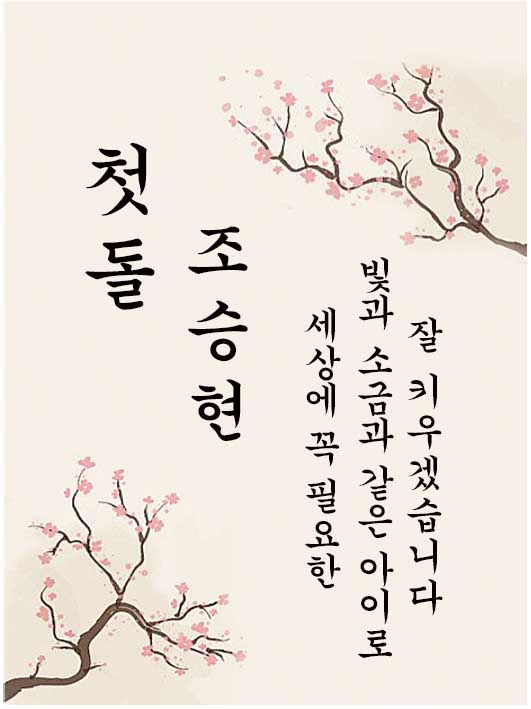 첫돌
조승현
세상에 꼭 필요한
빛과 소금과 같은 아이로
잘 키우겠습니다